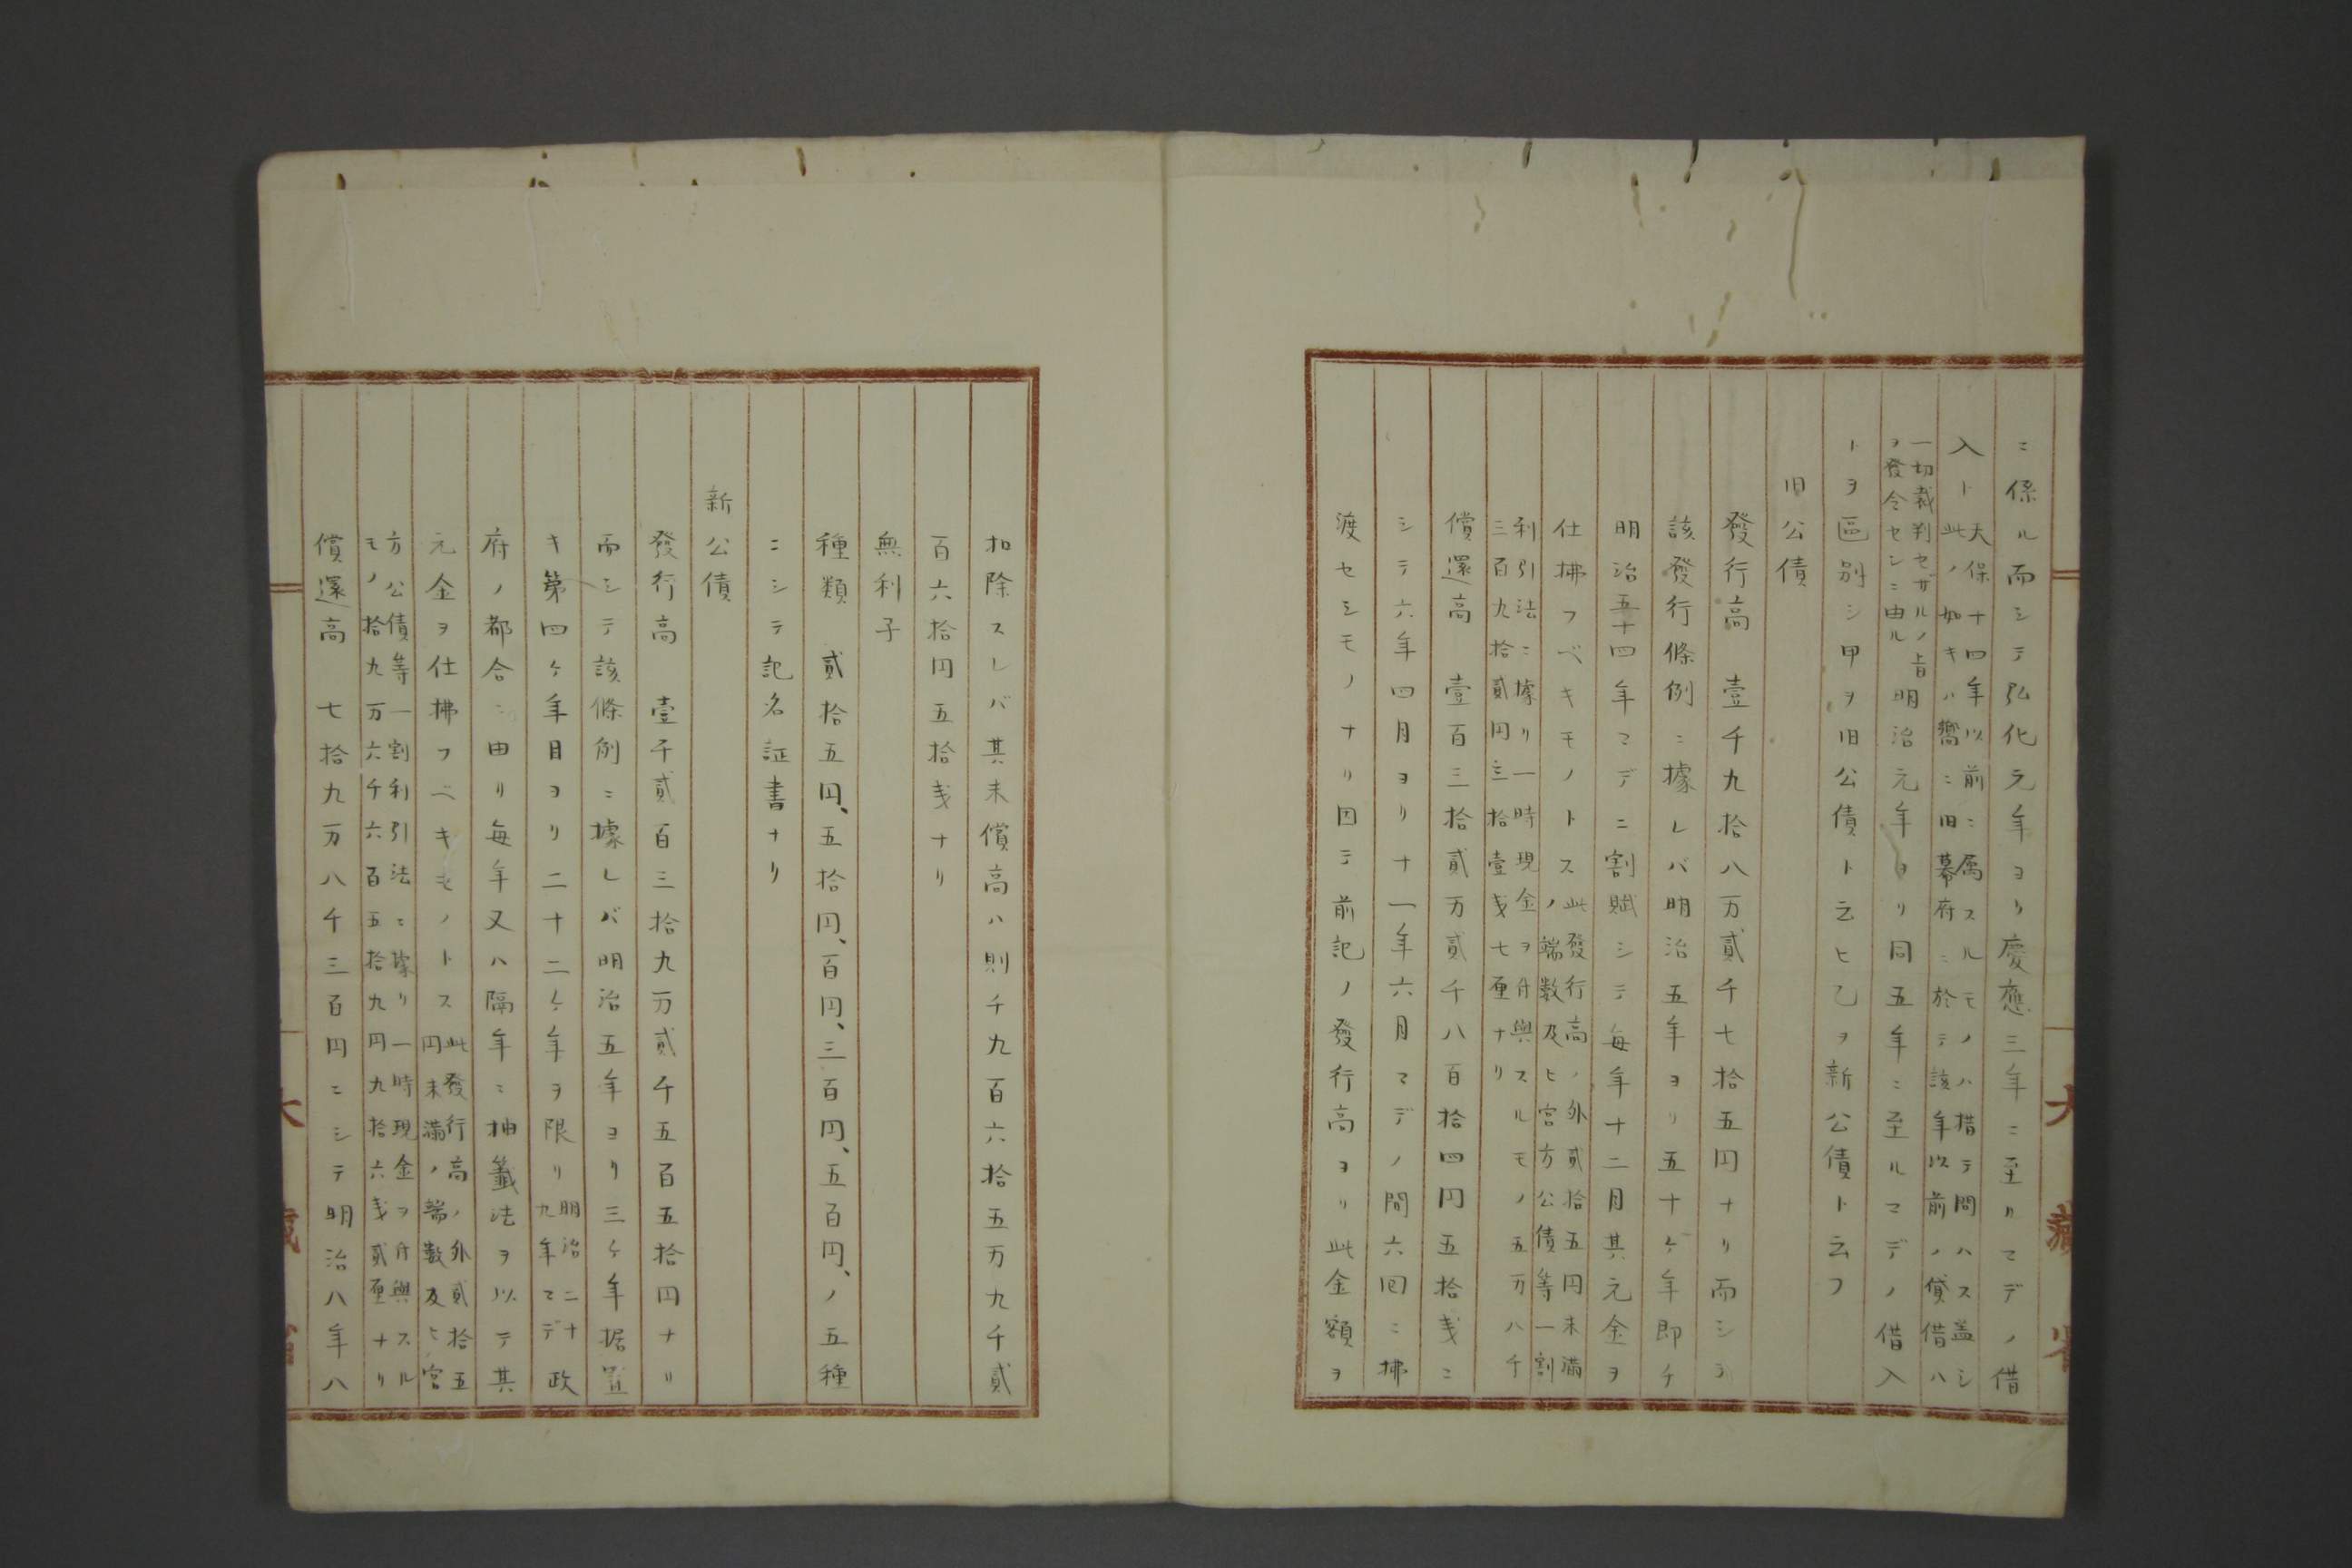 ニ係ル而シテ弘化元年ヨリ慶應三年ニ至ルマデノ借
入ト天保十四年以前ニ属スルモノハ措テ問ハス盖シ
此ノ如キハ嚮ニ旧幕府ニ於テ該年以前ノ貸借ハ
一切裁判セザルノ旨
ヲ發令セシニ由ル
明治元年ヨリ同五年ニ至ルマデノ借入
トヲ區別シ甲ヲ旧公債ト云ヒ乙ヲ新公債ト云フ
旧公債
發行高 壹千九拾八万貳千七拾五円ナリ而シテ
該發行條例ニ據レバ明治五年ヨリ五十ケ年即チ
明治五十四年マデニ割賦シテ毎年十二月其元金ヲ
仕拂フベキモノトス此發行高ノ外貳拾五円未満
ノ端数及ヒ官方公債等一割
利引法ニ據リ一時現金ヲ付與スルモノ五万八千
三百九拾貳円三拾壹戋七厘ナリ
償還高 壹百三拾貳万貳千八百拾四円五拾戋ニ
シテ六年四月ヨリ十一年六月マデノ間六回ニ拂
渡セシモノナリ因テ前記ノ發行高ヨリ此金額ヲ
扣除スレバ其未償高ハ則千九百六拾五万九千貳
百六拾円五拾戋ナリ
無利子
種類 貳拾五円、五拾円、百円、三百円、五百円、ノ五種
ニシテ記名証書ナリ
新公債
發行高 壹千貳百三拾九万貳千五百五拾円ナリ
而シテ該條例ニ據レバ明治五年ヨリ三ケ年据置
キ第四ケ年目ヨリ二十二ケ年ヲ限リ明治二十
九年マデ政
府ノ都合ニ由リ毎年又ハ隔年ニ抽籤法ヲ以テ其
元金ヲ仕拂フベキモノトス此發行高ノ外貳拾五
円未満ノ端数及ヒ官
方公債等一割利引法ニ據リ一時現金ヲ付與スル
モノ拾九万六千六百五拾九円九拾六戋貳厘ナリ
償還高 七拾九万八千三百円ニシテ明治八年八
大藏省